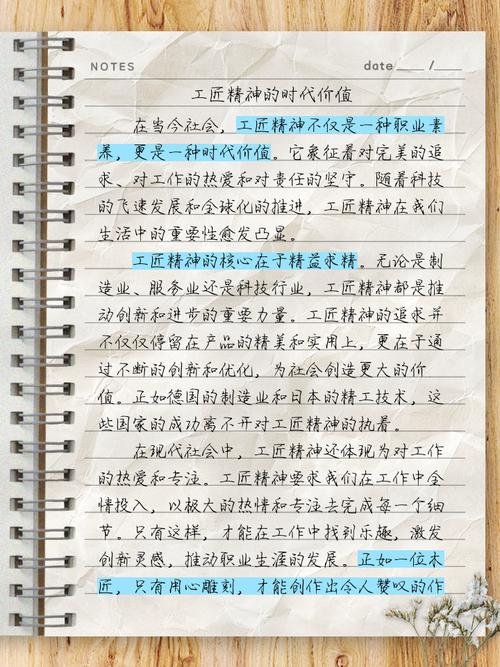 NOTES
date ___ / ___
工匠精神的时代价值
在当今社会，工匠精神不仅是一种职业素
养，更是一种时代价值。它象征着对完美的追
求、对工作的热爱和对责任的坚守。随着科技
的飞速发展和全球化的推进，工匠精神在我们
生活中的重要性愈发凸显。
工匠精神的核心在于精益求精。无论是制
造业、服务业还是科技行业，工匠精神都是推
动创新和进步的重要力量。工匠精神的追求并
不仅仅停留在产品的精美和实用上，更在于通
过不断的创新和优化，为社会创造更大的价
值。正如德国的制造业和日本的精工技术，这
些国家的成功离不开对工匠精神的执着。
在现代社会中，工匠精神还体现为对工作
的热爱和专注。工匠精神要求我们在工作中全
情投入，以极大的热情和专注去完成每一个细
节。只有这样，才能在工作中找到乐趣，激发
创新灵感，推动职业生涯的发展。正如一位木
匠，只有用心雕刻，才能创作出令人赞叹的作